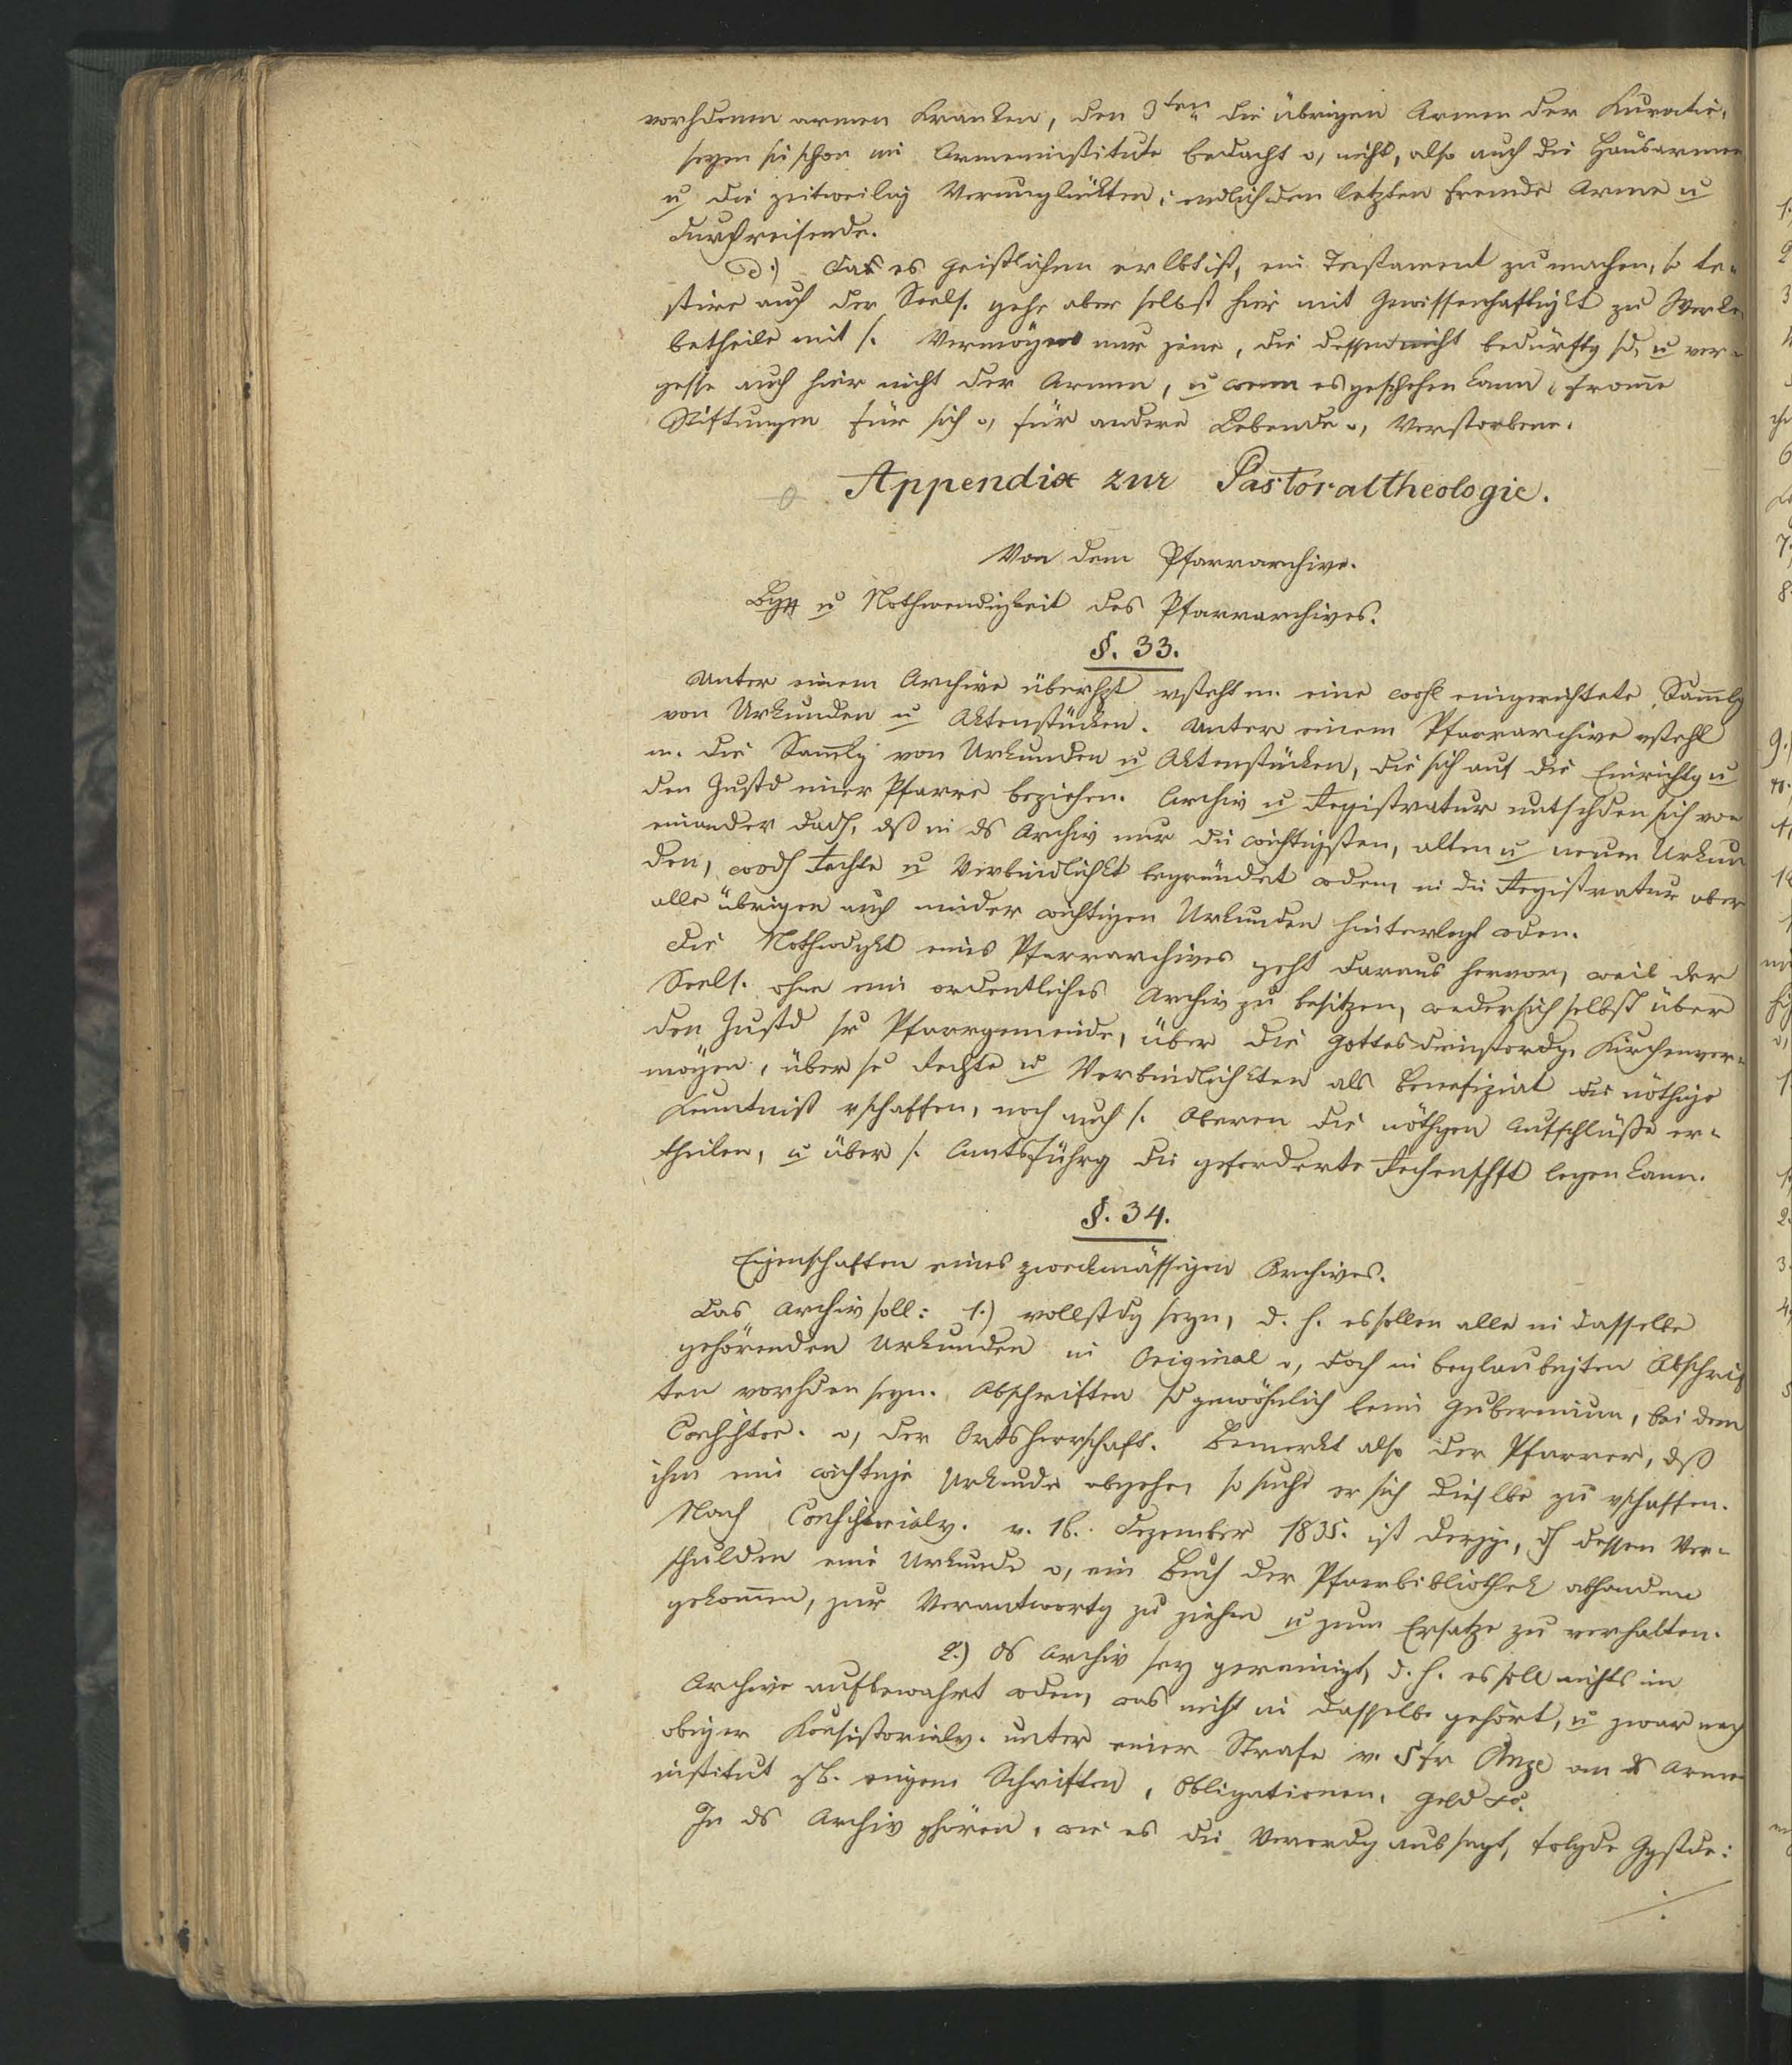 vorhdenen armen Kranken, den 3ten die übrigen Armen der Kuratie,
seyen sie schon im Armeninstitute bedacht o, nicht, also auch die Hausarmen
u die zeitweilig Verunglückten; endlich den letzten fremde Arme u
Durchreisende.
d.) Das es Geistlichen erlbt ist, ein Testament zu machen, so te-
stire auch der Seels. gehe aber selbst hier mit Gewissenhaftigkt zu Werke,
betheile mit s. Vermögen nur jene, die dessen bedürftg sd, u ver-
gesse auch hier nicht der Armen, u wenn es geschehen kann, fromme
Stiftungen für sich o, für andere Lebende o, Verstorbene.
Appendix zur Pastoraltheologie.
Von dem Pfarrarchive.
Bgrff u Nothwendigkeit des Pfarrarchives.
§. 33.
Unter einem Archive überhpt vsteht m. eine wohl eingerichtete Sam̅lg
von Urkunden u Aktenstücken. Unter einem Pfarrarchive vsteht
m. die Sam̅lg von Urkunden u Aktenstücken, die sich auf die Einrichtg u
den Zustd einer Pfarre beziehen. Archiv u Registratur untschden sich von
einander dadh, dß in ds Archiv nur die wichtigsten, alten u neuen Urkun
den, wodh Rechte u Verbindlichkt begründet wden, in die Registratur aber
alle übrigen auch minder wichtigen Urkunden hinterlegt wden.
Die Nothwdgkt eines Pfarrarchives geht daraus hervor, weil der
Seels. ohne ein ordentliches Archiv zu besitzen, weder sich selbst über
den Zustd sr Pfarrgemeinde, über die Gottesdienstordg, Kirchenver-
mögen, über se Rechte u Verbindlichkten als Benefiziat die nöthige
Kenntniß vschaffen, noch auch s. Oberen die nöthgen Aufschlüße er-
theilen, u über s. Amtsführg die geforderte Rechenschft legen kann.
§. 34.
Eigenschaften eines zweckmässigen Archives.
Das Archiv soll: 1.) vollstdg seyn, d. h. es sollen alle in dasselbe
gehörenden Urkunden in Original o, doch in beglaubigten Abschrif
ten vorhden seyn. Abschriften sd gewöhnlich beim Gubernium, bei dem
Consister. o, der Ortsherrschaft. Bemerkt also der Pfarrer, dß
ihm eine wichtige Urkunde abgehe, so suche er sich dieselbe zu vschaffen.
Nach Consistorialv. v. 16. Dezember 1835. ist derjge, dh dessen Ver-
schulden eine Urkunde o, ein Buch der Pfarrbibliothek abhanden
gekom̅en, zur Verantwortg zu ziehen u zum Ersatze zu verhalten.
2.) ds Archiv sey gereinigt, d. h. es soll nichts im
Archive aufbewahrt wden, was nicht in dasselbe gehört, u zwar nach
obiger Konsistorialv. unter einer Strafe v. 5 fr an ds Armen
institut zB. eigene Schriften, Obligationen, Geld etc.
In ds Archiv ghören, wie es die Verordg aussagt, folgde Ggstde:
./.